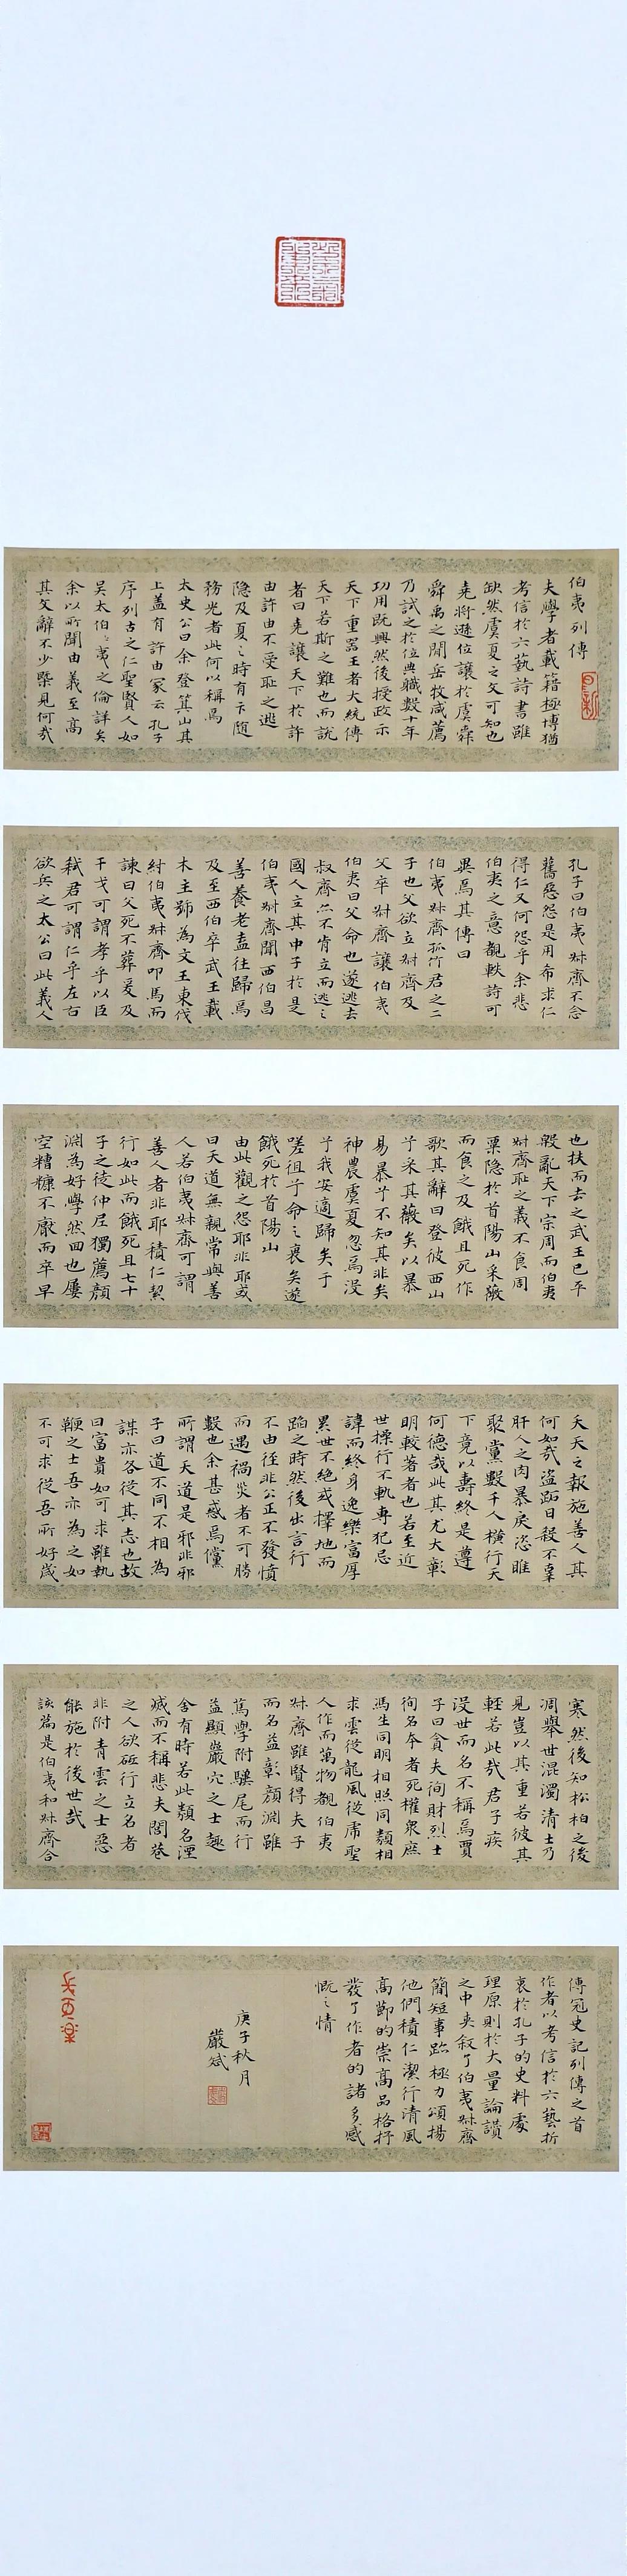 伯夷列傳
夫學者載籍極博猶
考信於六藝詩書雖
缺然虞夏之文可知也
堯將遜位讓於虞舜
舜禹之間岳牧咸薦
乃試之於位典職數十年
功用既興然後授政示
天下重器王者大統傳
天下若斯之難也而說
者曰堯讓天下於許
由許由不受恥之逃
隐及夏之時有卞随
務光者此何以稱焉
太史公曰余登箕山其
上盖有許由冢云孔子
序列古之仁聖賢人如
吴太伯伯夷之倫詳矣
余以所聞由義至高
其文辭不少槩見何哉
孔子曰伯夷叔齊不念
舊惡怨是用希求仁
得仁又何怨乎余悲
伯夷之意覩軼詩可
異焉其傳曰
伯夷叔齊孤竹君之二
子也父欲立叔齊及
父卒叔齊讓伯夷
伯夷曰父命也遂逃去
叔齊亦不肯立而逃之
國人立其中子於是
伯夷叔齊聞西伯昌
善養老盍往歸焉
及至西伯卒武王載
木主號為文王東伐
紂伯夷叔齊叩馬而
諫曰父死不葬爰及
干戈可謂孝乎以臣
弒君可謂仁乎左右
欲兵之太公曰此義人
也扶而去之武王已平
殷亂天下宗周而伯夷
叔齊恥之義不食周
粟隐於首陽山采薇
而食之及餓且死作
歌其辭曰登彼西山
兮采其薇矣以暴
易暴兮不知其非矣
神農虞夏忽焉没
兮我安適歸矣于
嗟徂兮命之衰矣遂
餓死於首陽山
由此觀之怨耶非耶或
曰天道無親常與善
人若伯夷叔齊可謂
善人者非耶積仁絜
行如此而餓死且七十
子之徒仲尼獨薦顏
淵為好學然回也屢
空糟糠不厭而卒早
夭天之報施善人其
何如哉盜跖日殺不辜
肝人之肉暴戾恣睢
聚黨數千人橫行天
下竟以壽終是遵
何德哉此其尤大彰
明較著者也若至近
世操行不軌專犯忌
諱而終身逸樂富厚
累世不绝或擇地而
蹈之時然後出言行
不由徑非公正不發憤
而遇禍災者不可勝
數也余甚惑焉儻
所謂天道是邪非邪
子曰道不同不相為
謀亦各從其志也故
曰富貴如可求雖執
鞭之士吾亦為之如
不可求從吾所好歲
寒然後知松柏之後
凋舉世混濁清士乃
見豈以其重若彼其
輕若此哉君子疾
没世而名不稱焉賈
子曰貪夫徇財烈士
徇名夸者死權衆庶
馮生同明相照同類相
求雲從龍風從虎聖
人作而萬物覩伯夷
叔齊雖賢得夫子
而名益彰顏淵雖
篤學附驥尾而行
益顯巖穴之士趣
舍有時若此類名湮
滅而不稱悲夫閭巷
之人欲砥行立名者
非附青雲之士惡
能施於後世哉
該篇是伯夷和叔齊合
傳冠史記列傳之首
作者以考信於六藝折
衷於孔子的史料處
理原則於大量論讚
之中夹叙了伯夷叔齊
簡短事跡極力頌揚
他們積仁潔行清風
高節的崇高品格抒
發了作者的諸多感
慨之情
庚子秋月
嚴斌